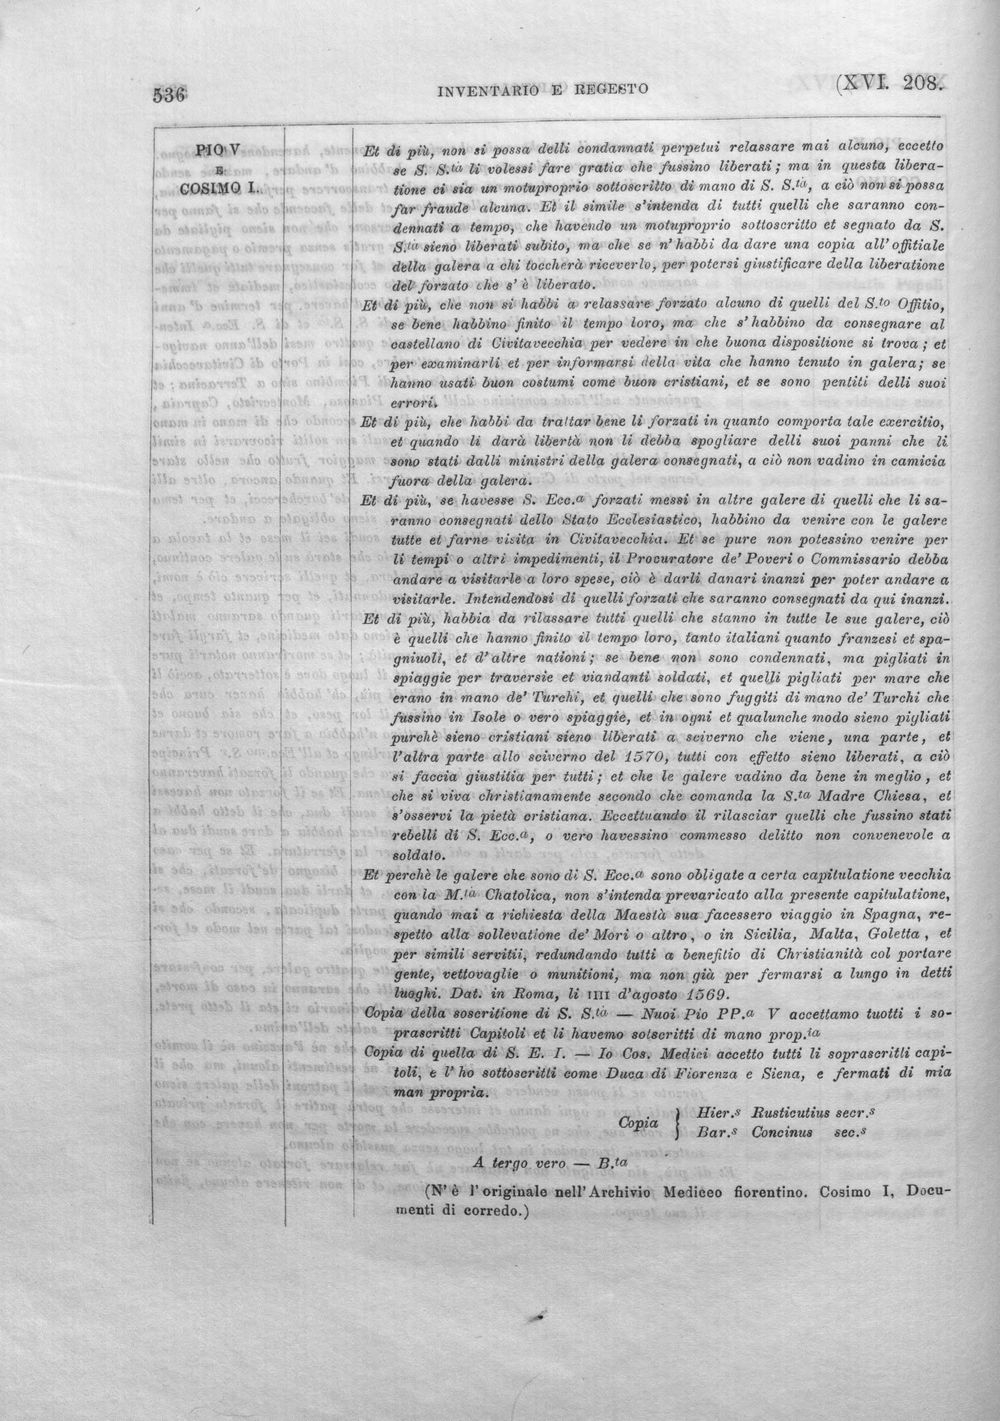 536
INVENTARIO E REGESTO
(XVI. 208.
PIO V
E
COSIMO I.
Et di più, non si possa delli condannati perpetui relassare mai alcuno, eccetto
se S. S.tà li volessi fare gratia che fussino liberati; ma in questa libera-
tione ci sia un motuproprio sottoscritto di mano di S. S.tà, a ciò non si possa
far fraude alcuna. Et il simile s'intenda di tutti quelli che saranno con-
dennati a tempo, che havendo un motuproprio sottoscritto et segnato da S.
S.tà sieno liberati subito, ma che se n'habbi da dare una copia all'offitiale
della galera a chi toccherà riceverlo, per potersi giustificare della liberatione
del forzato che s'è liberato.
Et di più, che non si habbi a relassare forzato alcuno di quelli del S.to Offitio,
se bene habbino finito il tempo loro, ma che s'habbino da consegnare al
castellano di Civitavecchia per vedere in che buona dispositione si trova; et
per examinarli et per informarsi della vita che hanno tenuto in galera; se
hanno usati buon costumi come buon cristiani, et se sono pentiti delli suoi
errori.
Et di più, che habbi da trattar bene li forzati in quanto comporta tale exercitio,
et quando li darà libertà non li debba spogliare delli suoi panni che li
sono stati dalli ministri della galera consegnati, a ciò non vadino in camicia
fuora della galera.
Et di più, se havesse S. Ecc.a forzati messi in altre galere di quelli che li sa-
ranno consegnati dello Stato Ecclesiastico, habbino da venire con le galere
tutte et farne visita in Civitavecchia. Et se pure non potessino venire per
li tempi o altri impedimenti, il Procuratore de' Poveri o Commissario debba
andare a visitarle a loro spese, ciò è darli danari inanzi per poter andare a
visitarle. Intendendosi di quelli forzati che saranno consegnati da qui inanzi.
Et di più, habbia da rilassare tutti quelli che stanno in tutte le sue galere, ciò
è quelli che hanno finito il tempo loro, tanto italiani quanto franzesi et spa-
gniuoli, et d'altre nationi; se bene non sono condennati, ma pigliati in
spiaggie per traversie et viandanti soldati, et quelli pigliati per mare che
erano in mano de' Turchi, et quelli che sono fuggiti di mano de' Turchi che
fussino in Isole o vero spiaggie, et in ogni et qualunche modo sieno pigliati
purchè sieno cristiani sieno liberati a sciverno che viene, una parte, et
l'altra parte allo sciverno del 1570, tutti con effetto sieno liberati, a ciò
si faccia giustitia per tutti; et che le galere vadino da bene in meglio, et
che si viva christianamente secondo che comanda la S.ta Madre Chiesa, et
s'osservi la pietà cristiana. Eccettuando il rilasciar quelli che fussino stati
rebelli di S. Ecc.a, o vero havessino commesso delitto non convenevole a
soldato.
Et perchè le galere che sono di S. Ecc.a sono obligate a certa capitulatione vecchia
con la M.tà Chatolica, non s'intenda prevaricato alla presente capitulatione,
quando mai a richiesta della Maestà sua facessero viaggio in Spagna, re-
spetto alla sollevatione de' Mori o altro, o in Sicilia, Malta, Goletta, et
per simili servitii, redundando tutti a benefitio di Christianità col portare
gente, vettovaglie o munitioni, ma non già per fermarsi a lungo in detti
luoghi. Dat. in Roma, li IIII d'agosto 1569.
Copia della soscritione di S. S.tà — Nuoi Pio PP.a V accettamo tuotti i so-
prascritti Capitoli et li havemo sotscritti di mano prop.ia
Copia di quella di S. E. I. — Io Cos. Medici accetto tutti li soprascritti capi-
toli, e l'ho sottoscritti come Duca di Fiorenza e Siena, e fermati di mia
man propria.
Copia } Hier.s Rusticutius secr.s
Bar.s Concinus sec.s
A tergo vero — B.ta
(N'è l'originale nell'Archivio Mediceo fiorentino. Cosimo I, Docu-
menti di corredo.)